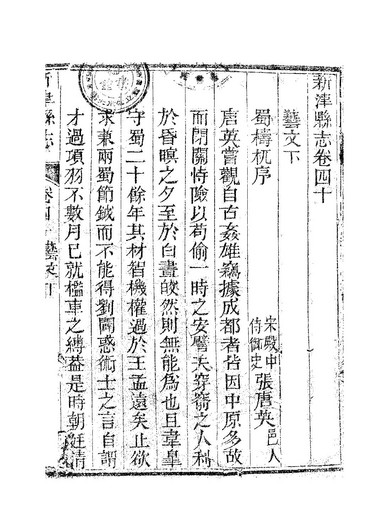 新津縣志卷四十
藝文下
蜀檮杌序
宋殿中侍御史張唐英邑人
唐英嘗觀自古姦雄竊據成都者皆因中原多故
而閉關恃險以苟偷一時之安譬夫穿窬之人利
於昏暝之夕至於白晝皎然則無能爲也且韋臯
守蜀二十餘年其材智機權過於王孟遠矣止欲
求兼兩蜀節鉞而不能得劉闢惑術士之言自謂
才過項羽不數月已就檻車之縛葢是時朝廷清
新津縣志
卷四
藝文下